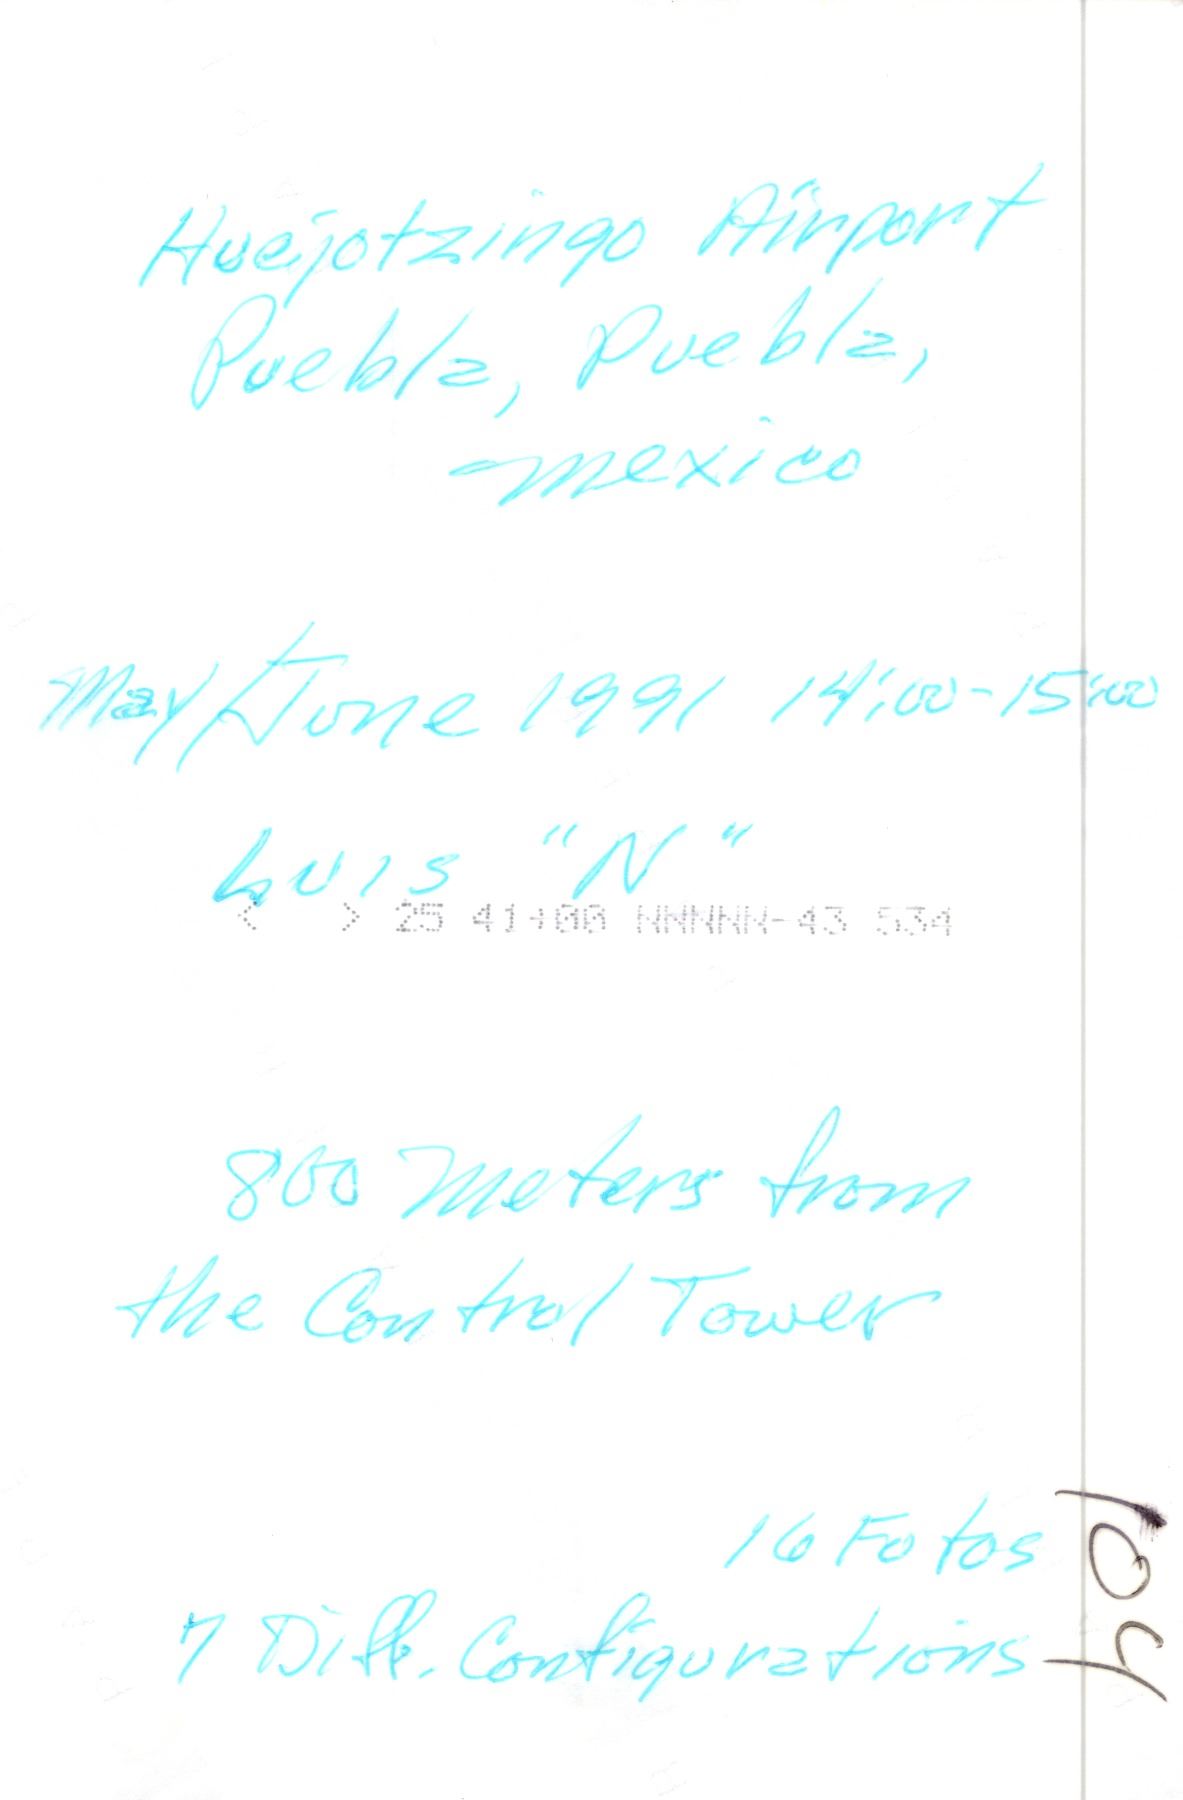 Huejotzingo Airport
Puebla, Puebla,
Mexico
May/June 1991 14:00-15:00
Luis "N"
< > 25 41+00 NNNNN-43 534
800 Meters from
the Control Tower
16 Fotos
7 Diff. Configurations
104